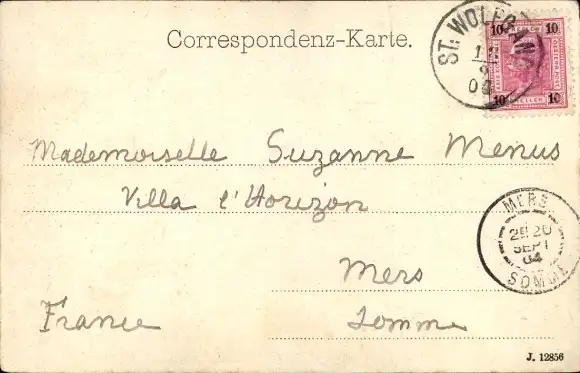 Correspondenz-Karte.
ST. WOLFGANG
04
10 10
HELLER
10 10
Mademoiselle Suzanne Menus
Villa l'Horizon
MERS
20
SEPT
04
SOMME
Mers
France Somme
J. 12856